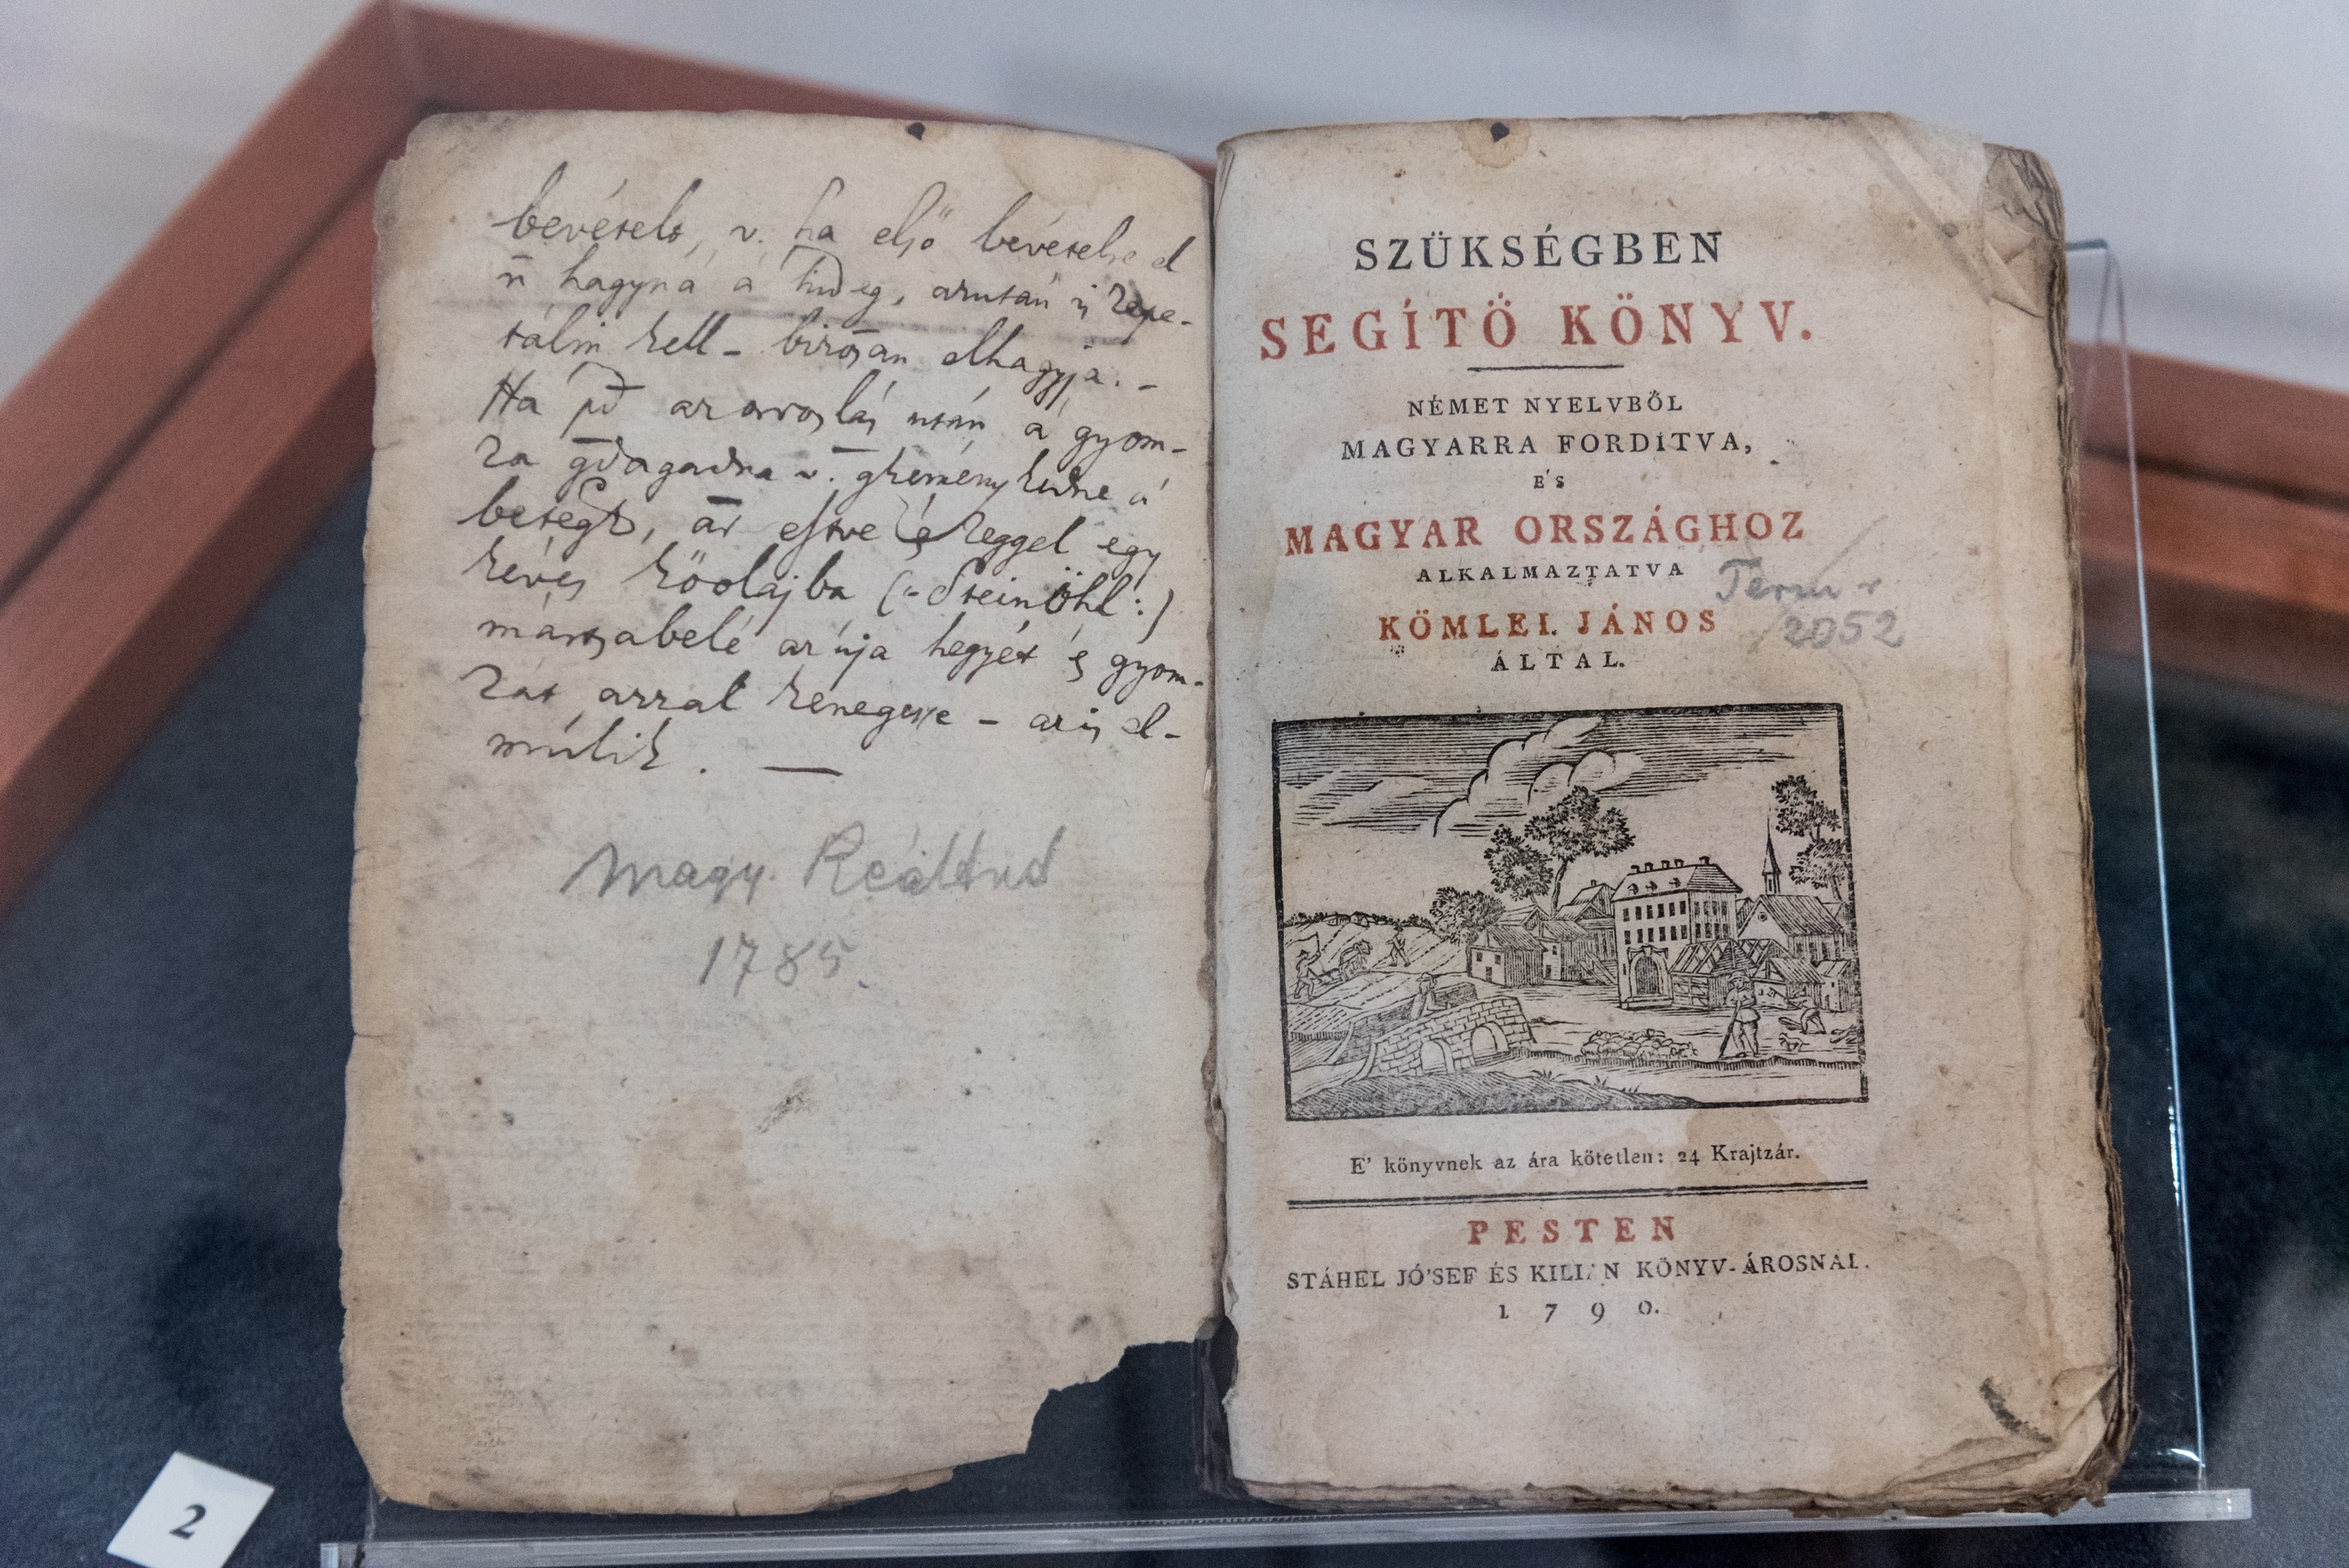 bevételö, v. ha elsö bevétele el
n̄ hagyná a' hideg, azután is repe-
tálni kell - bizōsan elhagyja. -
Ha pđ az orvoslás után a' gyom-
ra
v.
a'
betegk, az estve és reggel egy
kévés köolajba (:Steinöhl:)
mártsa belé az úja hegyét és gyom-
rát azzal kenegesse - az is el-
múlik. —
Magy.
1785.
SZÜKSÉGBEN
SEGÍTÖ KÖNYV.
NÉMET NYELVBŐL
MAGYARRA FORDÍTVA,
ÉS
MAGYAR ORSZÁGHOZ
ALKALMAZTATVA
KÖMLEI JÁNOS
ÁLTAL.
2052
E' könyvnek az ára kötetlen: 24 Krajtzár.
PESTEN
STÁHEL JÓ'SEF ÉS KILIÁN KÖNYV-ÁROSNÁL.
1790.
2